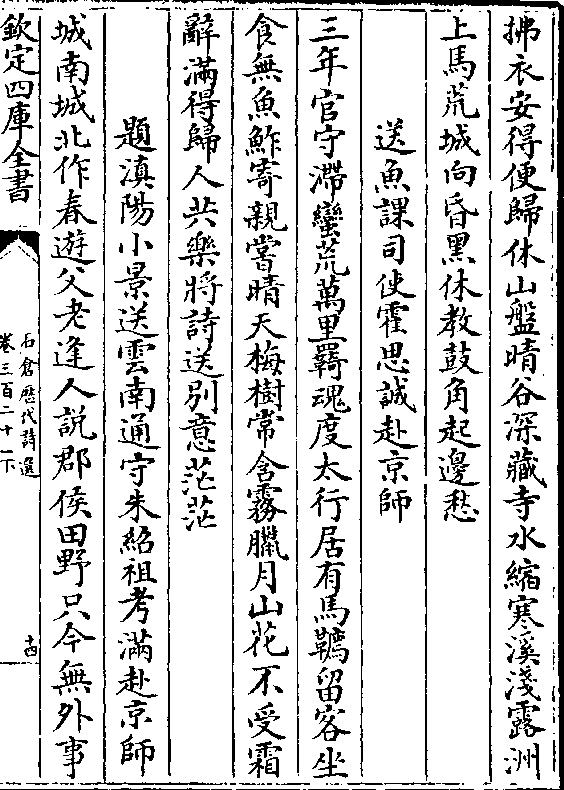 拂衣安得便歸休山盤晴谷深藏寺水縮寒溪淺露洲
上馬荒城向昏黑休教鼓角起邊愁
送魚課司使霍思誠赴京師
三年官守滯蠻荒萬里羇魂度太行居有馬韉留客坐
食無魚鮓寄親嘗晴天梅樹常含霧臘月山花不受霜
辭滿得歸人共樂將詩送別意茫茫
題滇陽小景送雲南通守朱紹祖考滿赴京師
城南城北作春遊父老逢人說郡侯田野只今無外事
欽定四庫全書
石倉歷代詩選
卷三百二十一下
十四